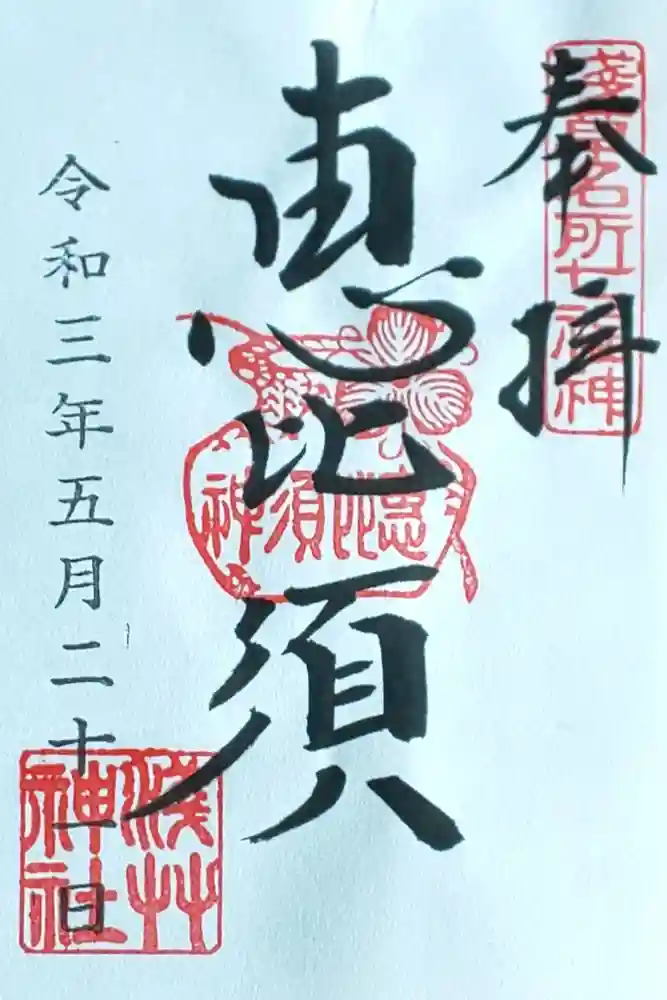 奉拝
淺草名所七福神
恵比須
恵比須神
令和三年五月二十一日
淺草神社